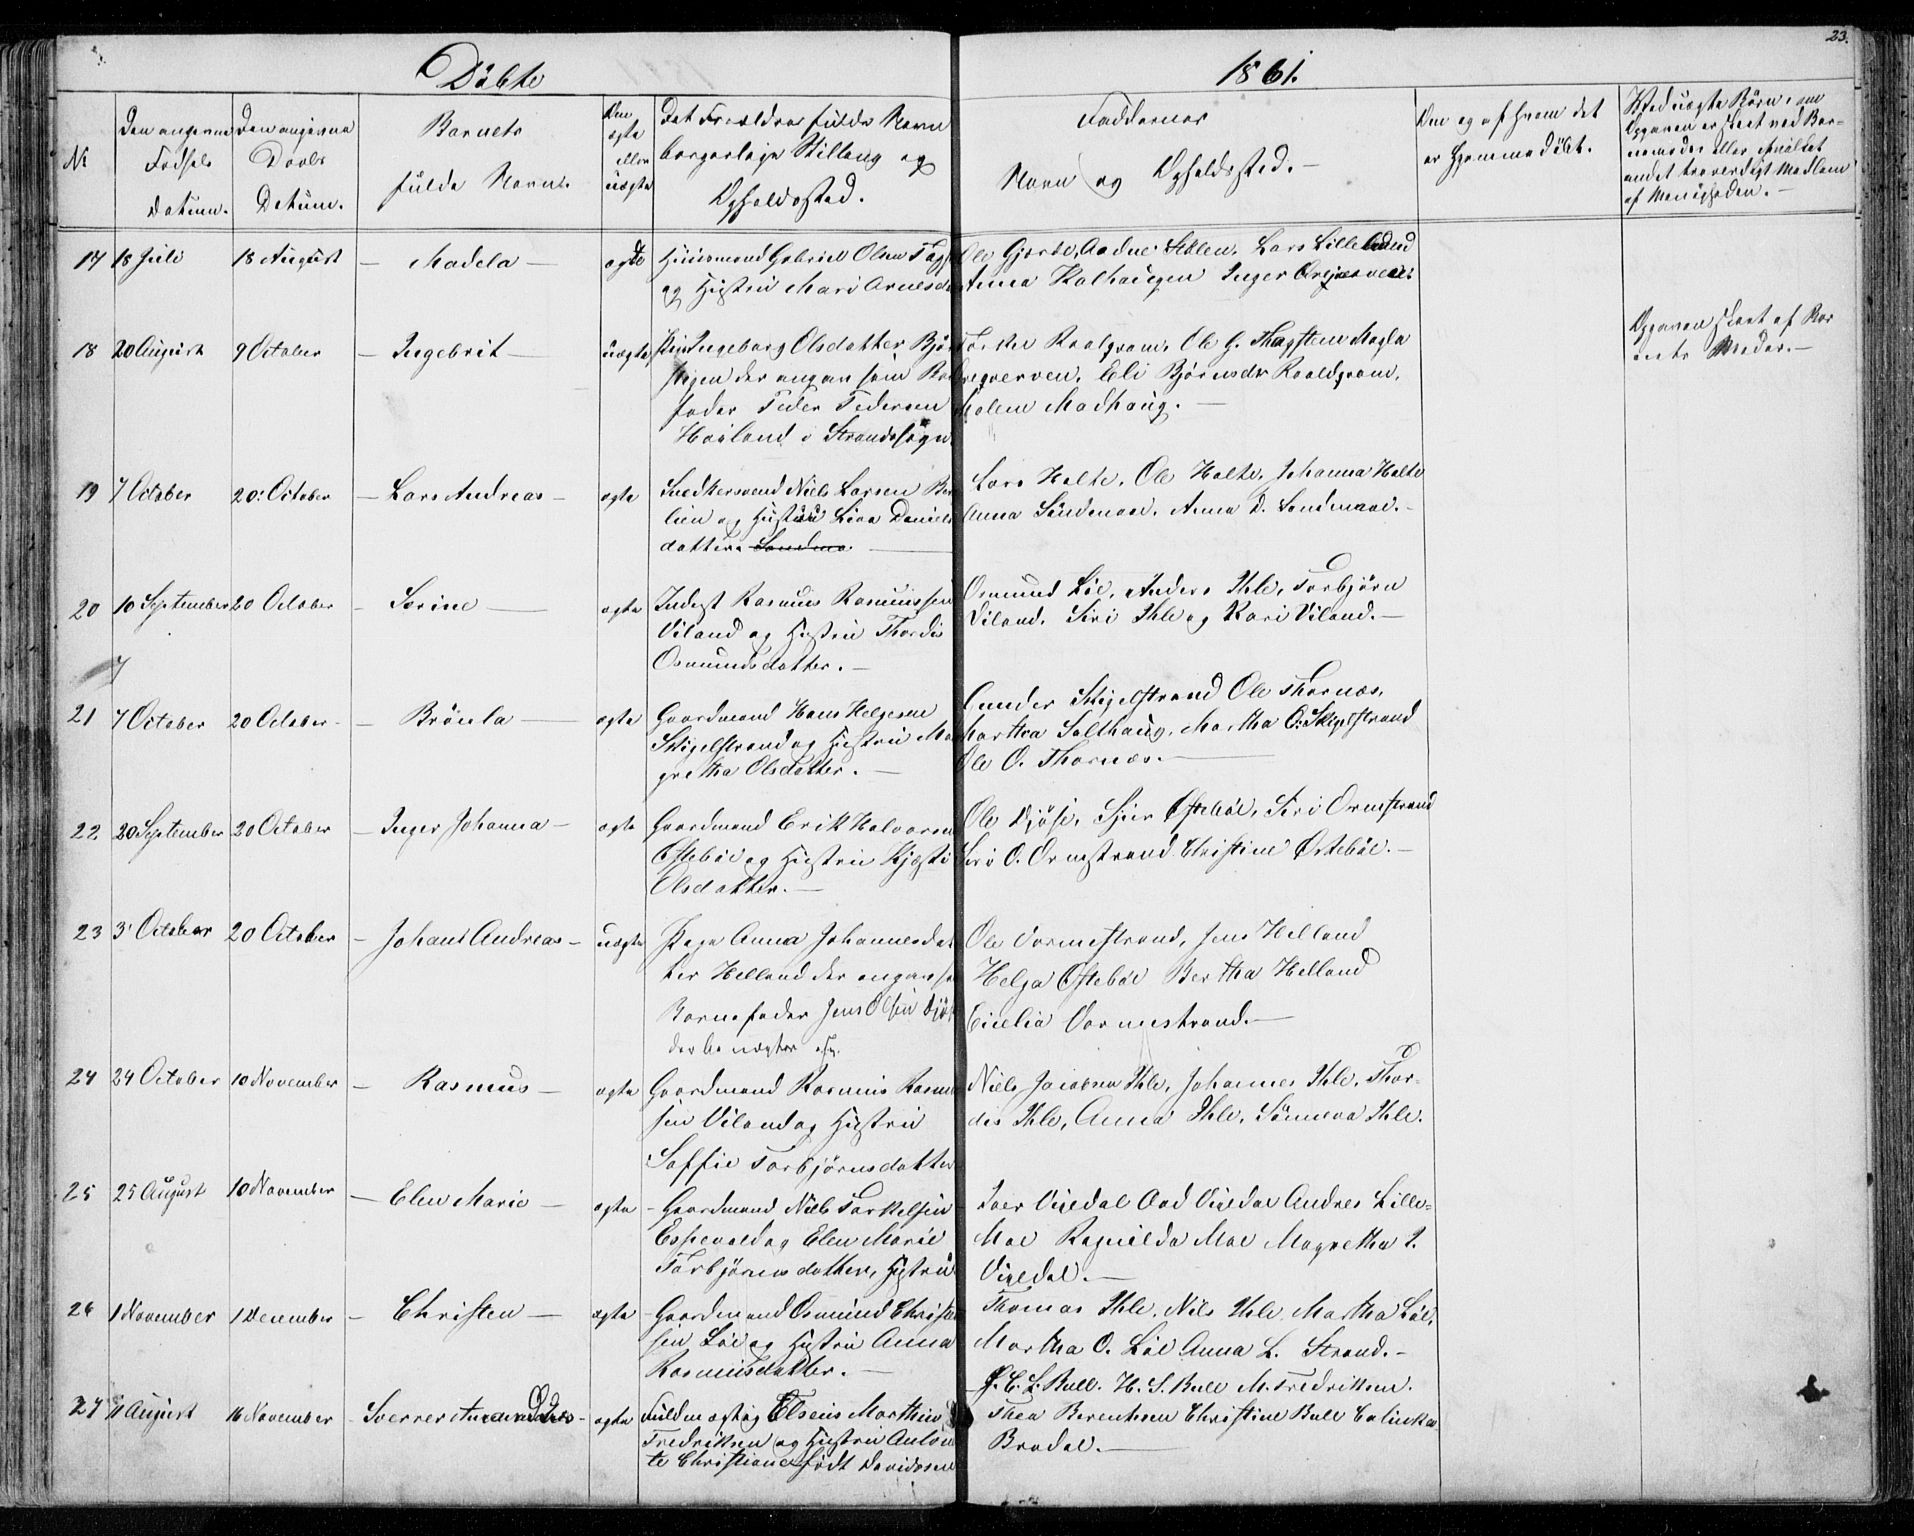 23.
Döbte
1861.
No
Den angivne
Fødsels
Datum.
Den angivne
Daabs
Datum.
Barnets
fulde Navn.
Om
ægte
eller
uægte
Det Forældres fulde Navn
borgerlige Stilling og
Opholdssted.
Faddernes
Navn og Opholdssted.
Om og af hvem det
er hjemmedöbt.
Ved uægte Börn, om
Opgaven er skeet ved Bar-
nemoder eller
andet troværdigt Medlem
af Menigheden.
17 18 Juli 18 August – Madela – ægte Huusmand Gabriel Olsen
og Hustru Mari
Ole Gjerde, Aadne Stölen, Lars Lilleland
Anna Kalhaugen Inger
18 20 August 9 October – Ingebrit – uægte Pige Ingeborg Olsdatter
der angav som
fader Peder Pedersen
Høiland i Strandsogn
Ole G. Magla
Eli Björnsdr
Malene Madhaug. –
Opgaven skeet af Bar
nets Moder. –
19 7 October 20: October – Lars Andreas – ægte Snedkersvend Niels Larsen
og Hustru Lisa Daniels
datter
Lars Holte, Ole Holte, Johanna Holte
Anna Sandenaae. Anna D. Sandenaae. –
20 10 September 20 October – Serine – ægte Inderst Rasmus Rasmussen
Viland og Hustru Thordis
Osmundsdatter. –
Osmund Löe, Anders Ihle, Torbjörn
Viland, Siri Ihle og Kari Viland. –
7
21 7 October 20 October – Brönla – ægte Gaardmand Hans Helgesen
Skigelstrand og Hustru Mar
gretha Olsdatter. –
Gunder Skigelstrand Ole Thornæs.
Martha Solthaug, Martha O. Skigelstrand
Ole O. Thornæs. –
22 20 September 20 October – Inger Johanna – ægte Gaardmand Erik Halvorsen
Østebøe og Hustru Kjersti
Olsdatter. –
Ole Djöse. Østebøe, Siri Ormstrand
Siri O. Ormstrand Christine Østebøe. –
23 3 October 20 October – Johan Andreas – uægte Pige Anna Johannesdat
ter Helland der angav som
Barnefader Jens Olsen
der benægter
Ole Vormestrand, Jens Helland
Helga Østebøe Bertha Helland
Cicelia Vormestrand. –
24 24 October 10 November – Rasmus – ægte Gaardmand Rasmus Rasmus
sen Viland og Hustru
Soffie Torbjörnsdatter
Niels Jacobsen Ihle, Johannes Ihle, Thor-
dis Ihle, Anna Ihle, Sönneva Ihle.
25 25 August 10 November – Elen Marie – ægte – Gaardmand Niels Torkelsen
Espevold og Elen Marie
Torbjörnsdatter, Hustru
Iver Vigedal Aad Vigedal Andres Lille-
Moe Ragnilda Moe Magretha I.
Vigedal. –
26 1 November 1 December – Christen – ægte – Gaardmand Osmund Christen
sen Löe og Hustru Anna
Rasmusdatter. –
Thomas Ihle, Nils Ihle, Martha Löe,
Martha O. Löe Anna L. Strand. –
27 11 August 16 November – Sverrer – ægte Fuldmægtig Elseus Marthin
Fredriksen og Hustru Antoni
te Christiane födt Davidsen
J. C. L. Bull. H. S. Bull M. Fredriksen.
Thea Berentsen Christine Bull
Brodal. –